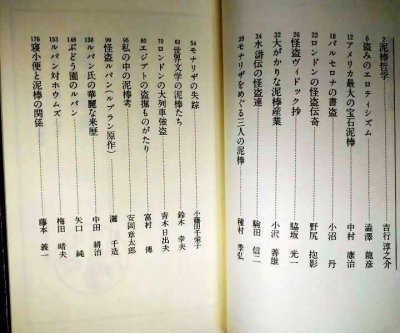 2 泥棒哲学 吉行 淳之介
6 盗みのエロティシズム 澁澤 龍彦
12 アメリカ最大の宝石泥棒 中村 康治
18 バルセロナの書盗 小沼 丹
22 ロンドンの怪盗伝奇 野尻 抱影
26 怪盗ヴィドック抄 脇坂 光一
32 大がかりな泥棒産業 小沢 善雄
34 水滸伝の怪盗達 駒田 信二
39 モナリザをめぐる三人の泥棒 種村 季弘
54 モナリザの失踪 小鷹信光
63 世界文学の泥棒たち 鈴木 幸夫
70 ロンドンの大列車強盗 青木 日出夫
80 エジプトの盗掘ものがたり 富村 傳
95 私の中の泥棒考 安岡 章太郎
99 怪盗ルパン(ルブラン原作) 灘 千造
138 ルパン氏の華麗な来歴 中田 耕治
146 ぶどう園のルパン 矢口 純
153 ルパン対ホウムズ 梅田 晴夫
176 寝小便と泥棒の関係 藤本 義一